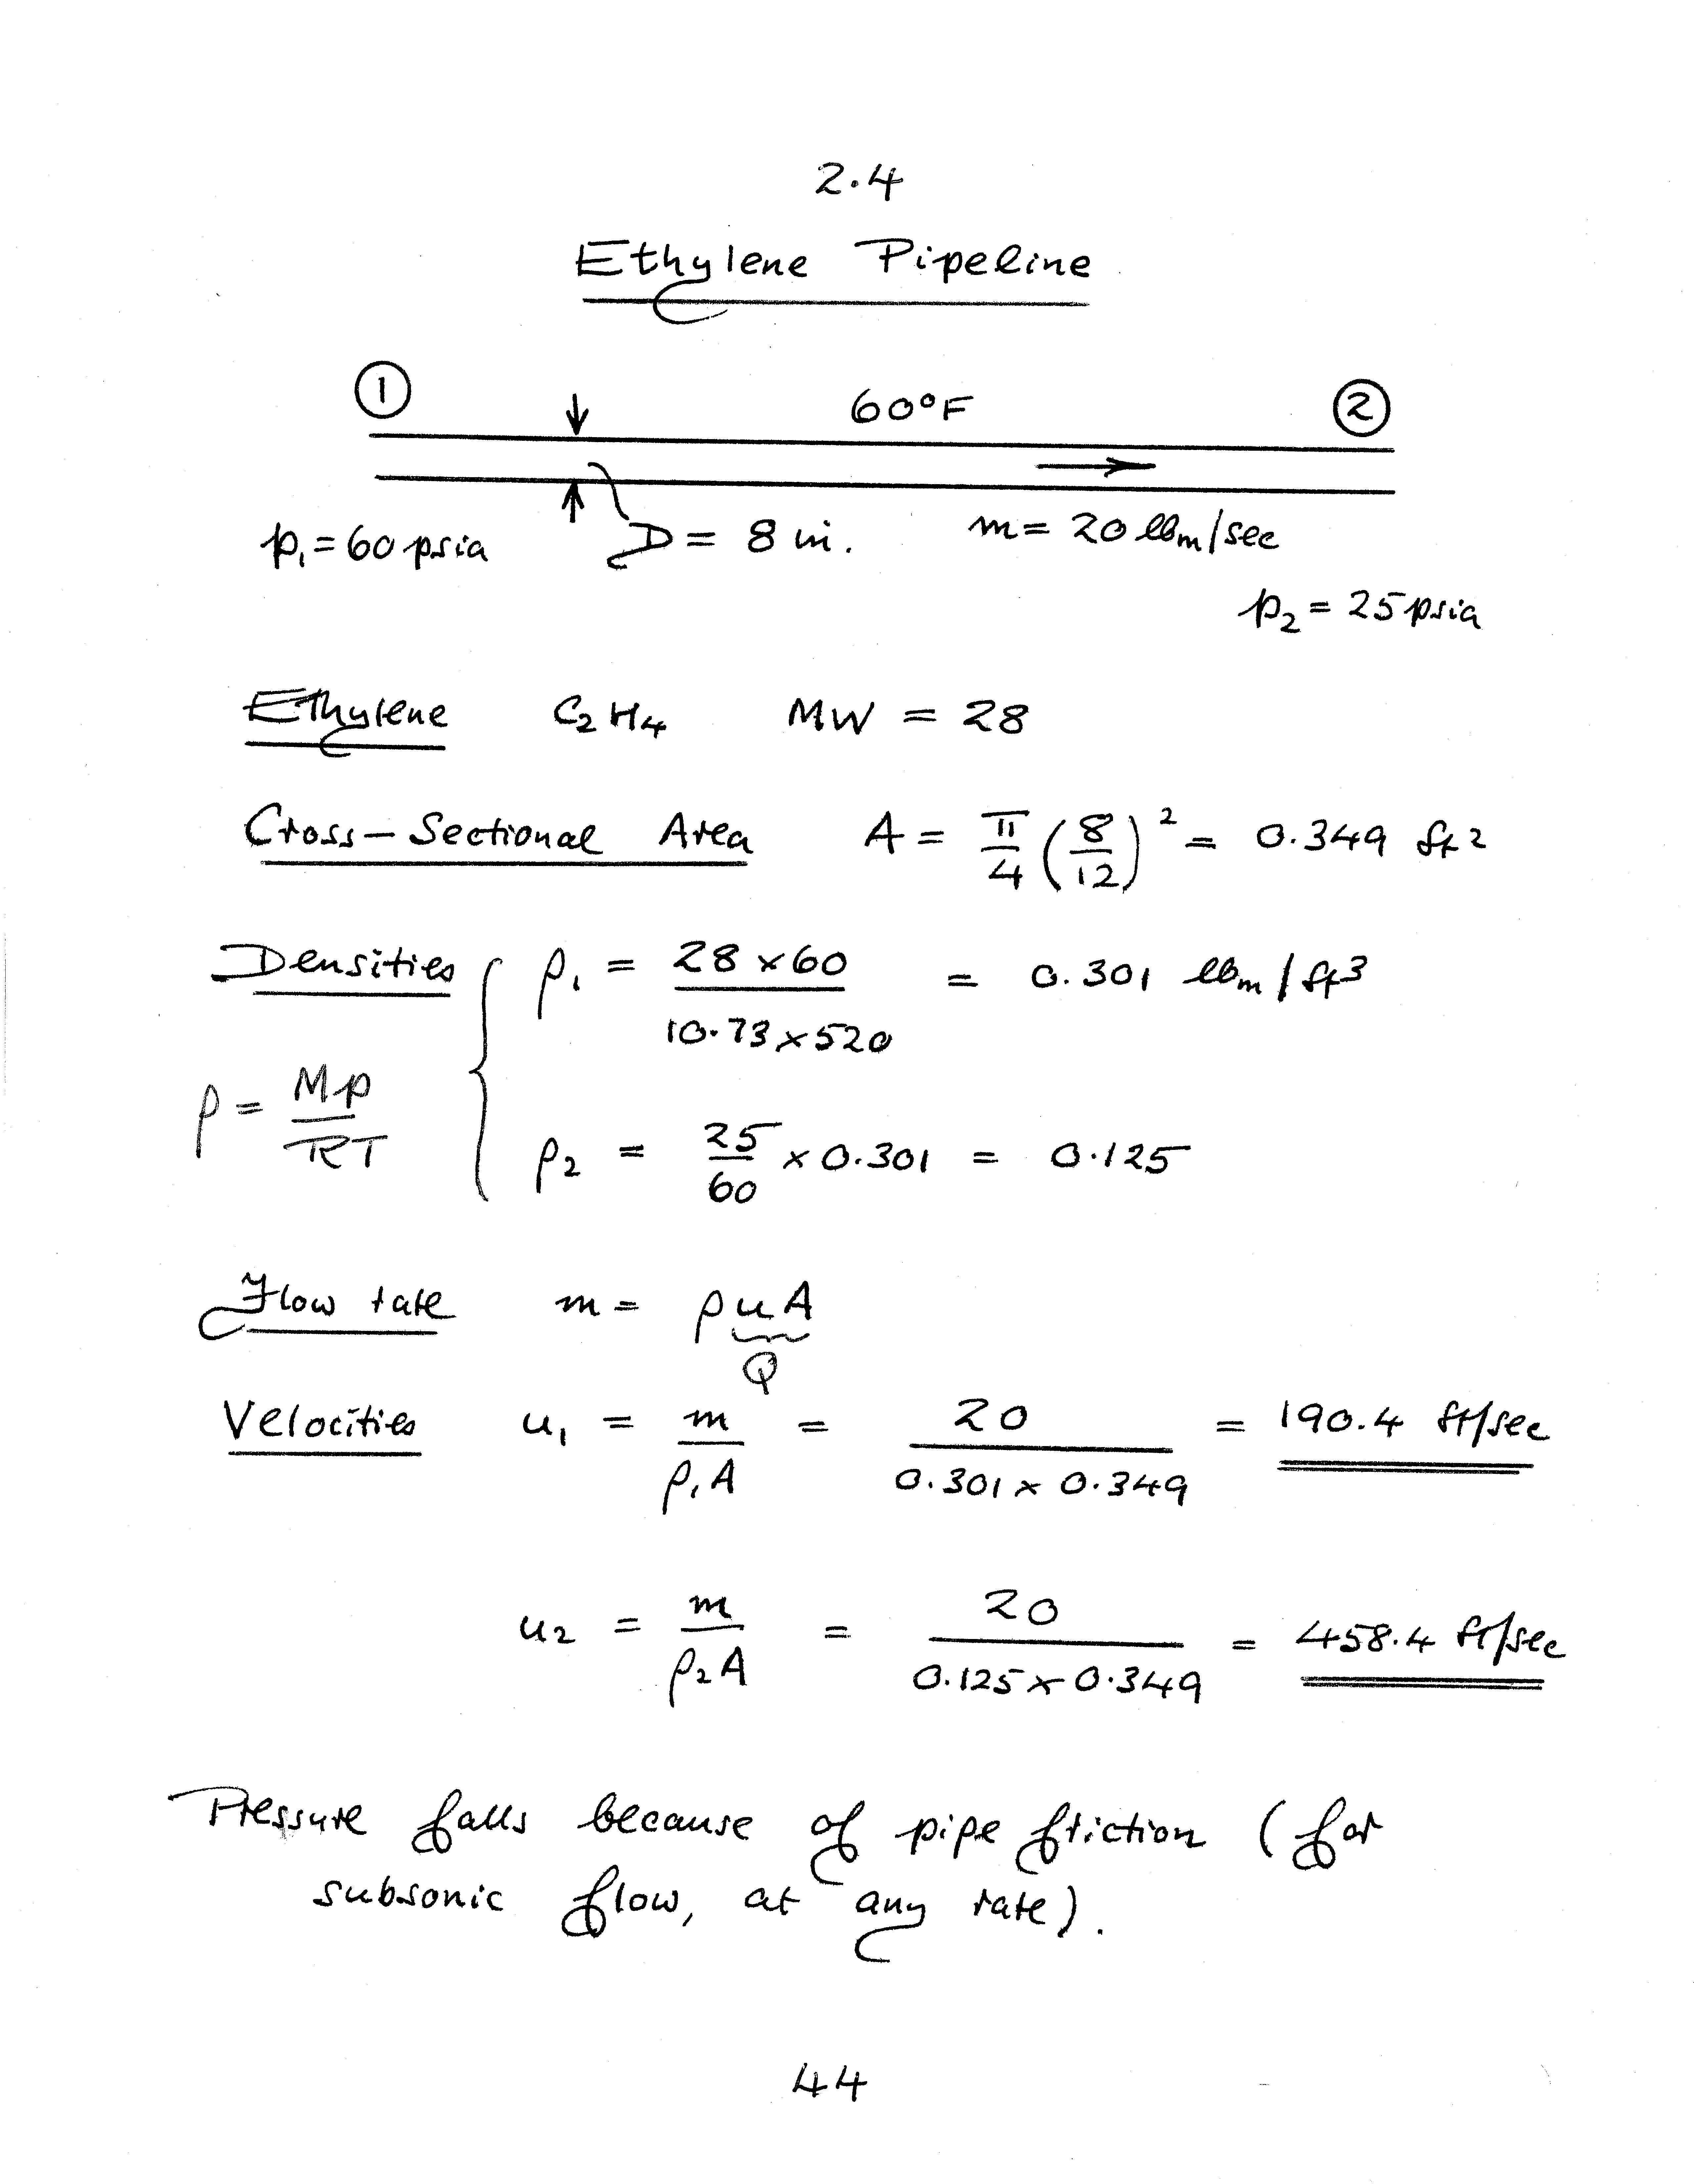 2.4
Ethylene Pipeline
① 60°F ②
p₁ = 60 psia D = 8 in. m = 20 lbm/sec
p₂ = 25 psia
Ethylene C₂H₄ MW = 28
Cross-Sectional Area A = π/4 (8/12)² = 0.349 ft²
Densities ρ₁ = 28 × 60 / 10.73 × 520 = 0.301 lbm/ft³
ρ = Mp / RT
ρ₂ = 25/60 × 0.301 = 0.125
Flow rate m = ρuA
Q
Velocities u₁ = m / ρ₁A = 20 / 0.301 × 0.349 = 190.4 ft/sec
u₂ = m / ρ₂A = 20 / 0.125 × 0.349 = 458.4 ft/sec
Pressure falls because of pipe friction (for
subsonic flow, at any rate).
44